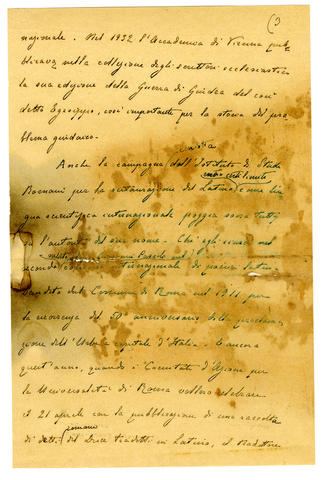 (3
nazionale. Nel 1932 l'Accademia di Vienna pub
blicava nella collezione degli scrittori ecclesiastici
la sua edizione della Guerra di Giudea del così
detto Egesippo, così importante per la storia del pro
blema giudaico.
Anche la campagna dall'Istituto di Studi
Romani per la restaurazione del Latino come lin
gua scientifica internazionale poggia sopra tutto
su l'autorità del suo nome. Ch'egli
di poesia latina
bandito dal Comune di Roma nel 1911 per
la ricorrenza del 50° anniversario della proclama
zione dell'Urbe a capitale d'Italia. E ancora
quest'anno, quando i Comitati d'Azione per
la Universalità di Roma vollero celebrare
il 21 aprile con la pubblicazione di una raccolta
romano
di detti del Duce tradotti in Latino, il traduttore